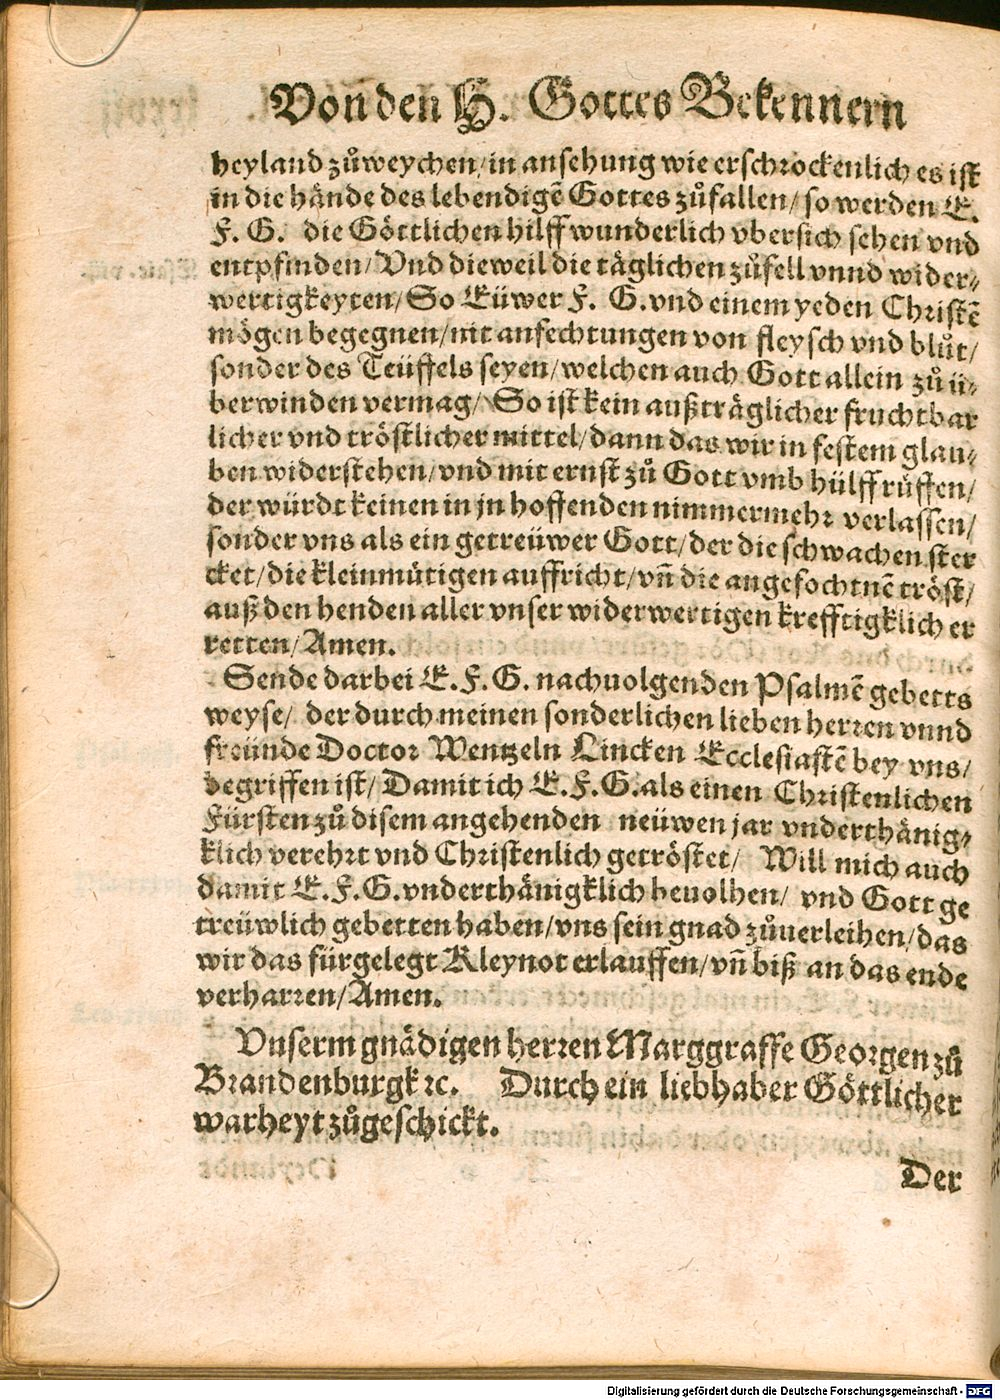 Von den H. Gottes Bekennern
heyland zůweychen/ in ansehung wie erschrockenlich es ist
in die hände des lebendigẽ Gottes zůfallen/ so werden E.
F. G. die Göttlichen hilff wunderlich vbersich sehen vnd
entpfinden/ Vnd dieweil die täglichen zůfell vnnd wider⸗
wertigkeyten/ So Eüwer F. G. vnd einem yeden Christẽ
mögen begegnen/ nit anfechtungen von fleysch vnd blůt/
sonder des Teüffels seyen/ welchen auch Gott allein zů ü⸗
berwinden vermag/ So ist kein außträglicher fruchtbar
licher vnd tröstlicher mittel/ dann das wir in festem glau⸗
ben widerstehen/ vnd mit ernst zů Gott vmb hülff růffen/
der würdt keinen in jn hoffenden nimmermehr verlassen/
sonder vns als ein getreüwer Gott/ der die schwachen ster
cket/ die kleinmütigen auffricht/ vñ die angefochtnẽ tröst/
auß den henden aller vnser widerwertigen krefftigklich er
retten/ Amen.
Sende darbei E. F. G. nachuolgenden Psalmẽ gebetts
weyse/ der durch meinen sonderlichen lieben herren vnnd
freünde Doctor Wentzeln Lincken Ecclesiastẽ bey vns/
begriffen ist/ Damit ich E. F. G. als einen Christenlichen
Fürsten zů disem angehenden neüwen jar vnderthänig⸗
klich verehrt vnd Christenlich getröstet/ Will mich auch
damit E. F. G. vnderthänigklich beuolhen/ vnd Gott ge
treüwlich gebetten haben/ vns sein gnad zůuerleihen/ das
wir das fürgelegt Kleynot erlauffen/ vñ biß an das ende
verharren/ Amen.
Vnserm gnädigen herren Marggraffe Georgen zů
Brandenburgk ꝛc. Durch ein liebhaber Göttlicher
warheyt zůgeschickt.
Der
Digitalisierung gefördert durch die Deutsche Forschungsgemeinschaft - DFG